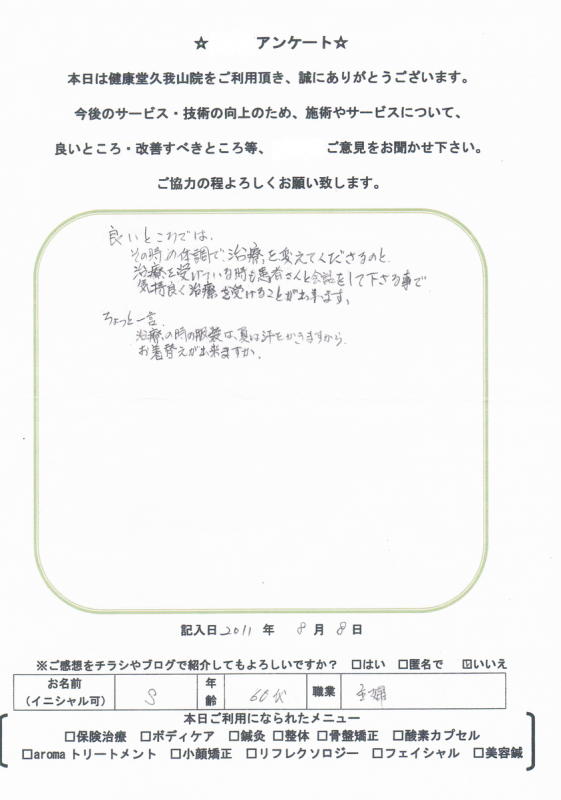 ☆ アンケート☆
本日は健康堂久我山院をご利用頂き、誠にありがとうございます。
今後のサービス・技術の向上のため、施術やサービスについて、
良いところ・改善すべきところ等、 ご意見をお聞かせ下さい。
ご協力の程よろしくお願い致します。
良いところでは、
その時の体調で、治療を変えてくださるのと
治療を受けている時も患者さんと会話をして下さる事で
気持良く治療を受けることが出来ます。
ちょっと一言
治療の時の服装は、夏は汗をかきますから
お着替えが出来ますか。
記入日 2011 年 8 月 8 日
※ご感想をチラシやブログで紹介してもよろしいですか? □はい □匿名で ☑いいえ
お名前（イニシャル可） S 年齢 60代 職業 主婦
本日ご利用になられたメニュー
□保険治療 □ボディケア □鍼灸 □整体 □骨盤矯正 □酸素カプセル
□aroma トリートメント □小顔矯正 □リフレクソロジー □フェイシャル □美容鍼